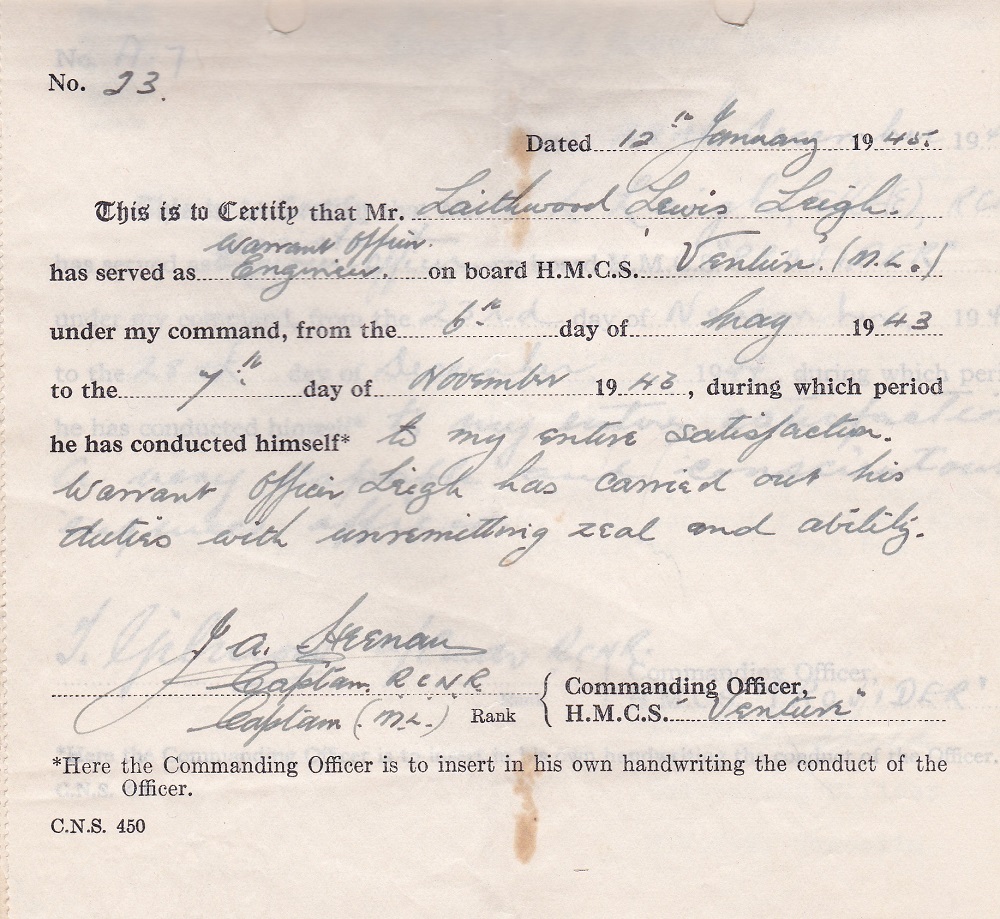 No. 23.
Dated 12th January 1945.
This is to Certify that Mr. Laithwood Lewis Leigh.
Warrant Officer
has served as Engineer. on board H.M.C.S. "Venture" (M.L.)
under my command, from the 6th day of May 1943
to the 7th day of November 1943, during which period
he has conducted himself* to my entire satisfaction.
Warrant Officer Leigh has carried out his
duties with unremitting zeal and ability.
J. A. Heenan
Captain R C N R
Captain (M.L.) Rank
Commanding Officer,
H.M.C.S. "Venture"
*Here the Commanding Officer is to insert in his own handwriting the conduct of the
Officer.
C.N.S. 450